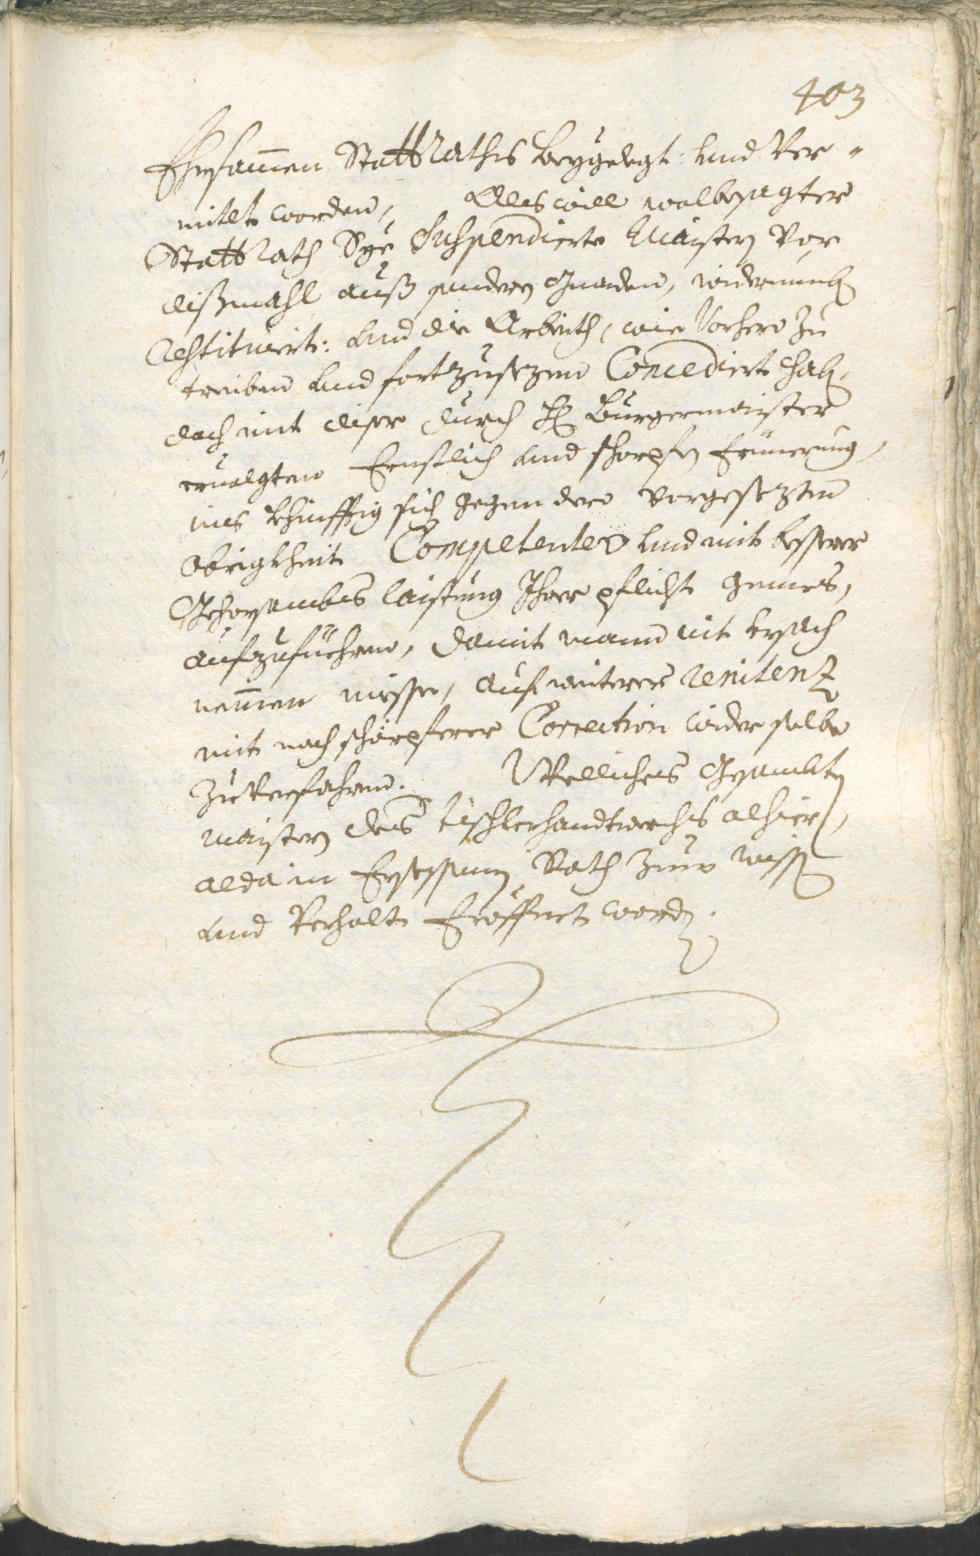 403
Ehrsammen Stattraths beygelegt: und Ver=
mitlt worden, Alß will wolbesagter
Stattrath Sye Suspendierte Maister vor
dißmahl auß sondern Gnaden, widerumb
Restituiert: und die Arbeith, wie Vorhero zu
treiben und fortzusezen Concediert hab,
doch mit diser durch H: Burgermaister
ervolgten Ernstlich und schorpfen Erinnerung,
uns khinfftig sich gegen dero vorgesezten
obrigkheit Competenter und mit besserer
Gehorsambs laistung Ihrer pflicht gemes,
aufzufüehren, damit mann nit Ursach
nemmen miesse, auf weiterer Renitenz
mit noch schörpferer Correction wider selbe
zu Verfahren. Welliches Gesambten
maistern des Tischlerhandtwerchs alhier,
alda in Ersessnem Rath zur wissen
und Verhalt Eröffnet worden.